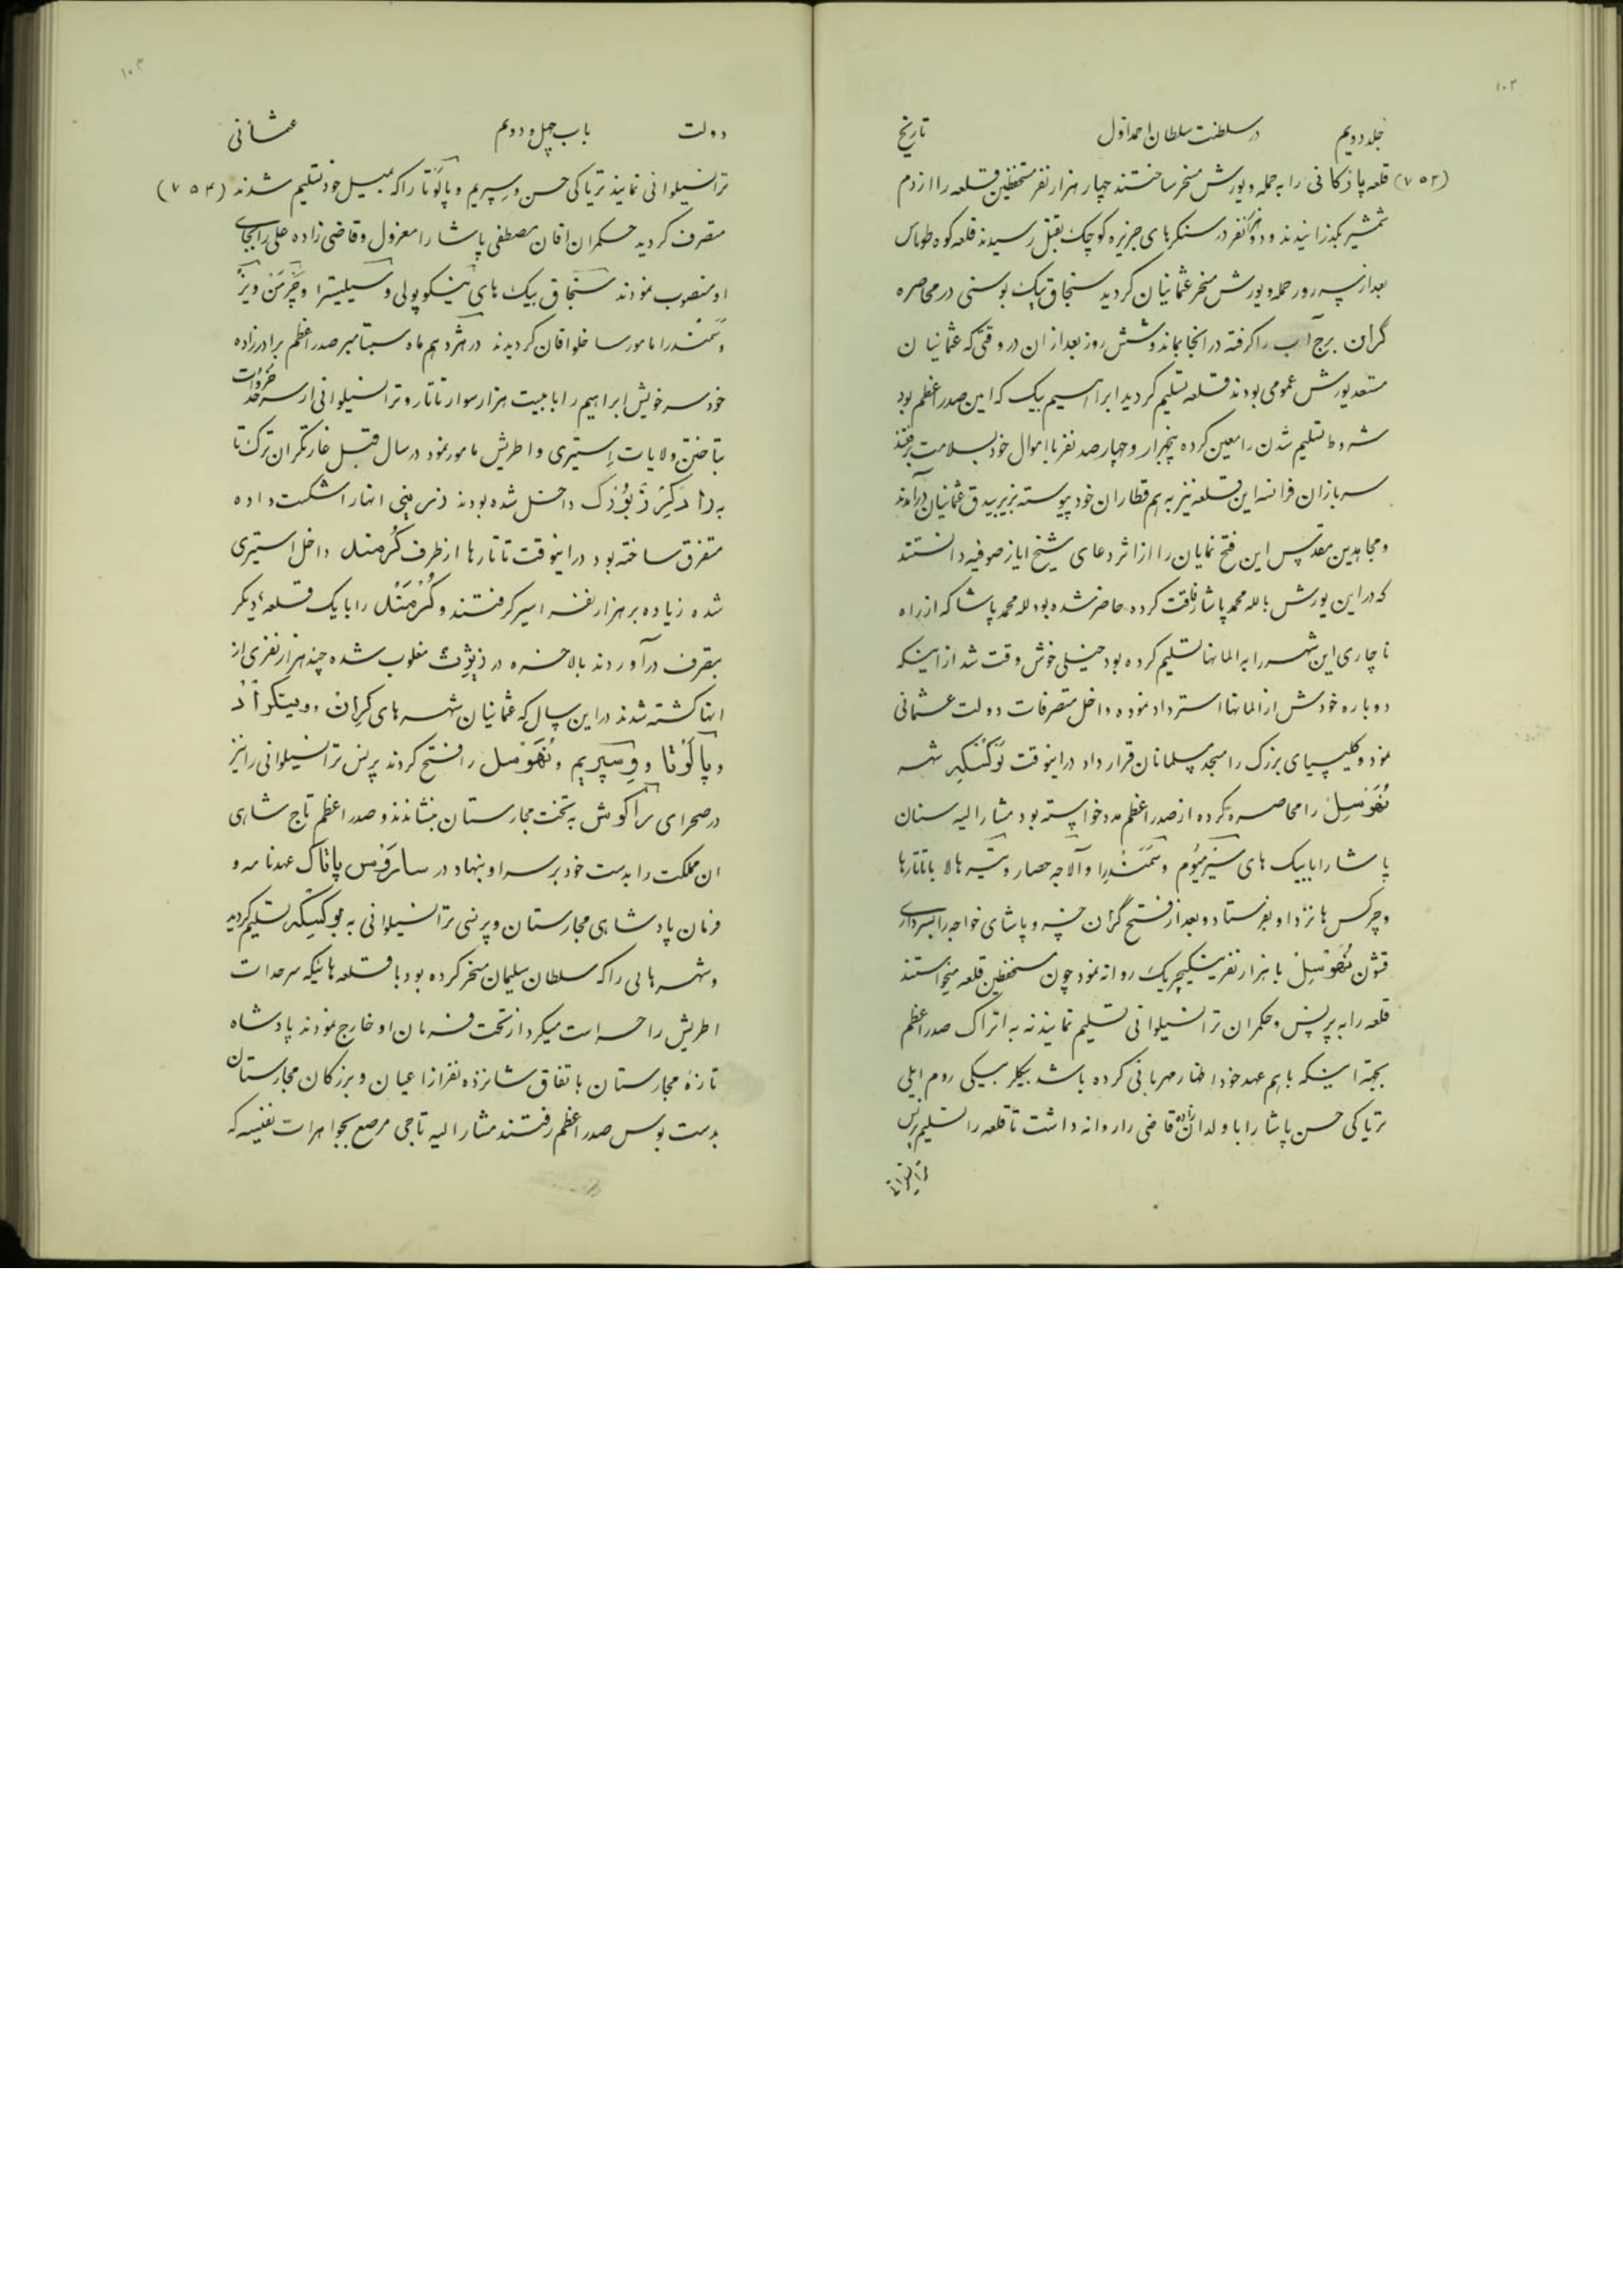 ۱۰۲
جلد دویم در سلطنت سلطان احمد اول تاریخ
(۷۵۲) قلعه پاذکانی را به حمله و یورش مسخر ساختند چهار هزار نفر مستحفظین قلعه را از دم
شمشیر بگذرانیدند و در سنکرهای جزیره کوچک بقتل رسیدند قلعه کوه طوماس
بعد از سه روز حمله و یورش مسخر عثمانیان کردید سنجاق بیک بوسنی در محاصره
گران برج آب را کرفته در انجا بماند و شش روز بعد از ان در وقتی که عثمانیان
مستعد یورش عمومی بودند قلعه تسلیم کردید ابراهیم بیک که امین صدر اعظم بود
شروط تسلیم شدن را معین کرده پنجهزار و چهارصد نفر با اموال خود بسلامت برفتند
سربازان فرانسه این قلعه نیز به هم قطاران خود پیوسته بزیر بیدق عثمانیان درآمدند
و مجاهدین مقدس این فتح نمایان را از اثر دعای شیخ ایاز صوفیه دانستند
که در این یورش با لله محمد پاشا رفاقت کرده حاضر شده بود لله محمد پاشا که از راه
ناچاری این شهر را به المانها تسلیم کرده بود خیلی خوش وقت شد از اینکه
دوباره خودش از المانها استرداد نموده داخل متصرفات دولت عثمانی
نمود و کلیسیای بزرک را مسجد مسلمانان قرار داد در اینوقت بوکسکه شهر
نهوسل را محاصره کرده از صدر اعظم مدد خواسته بود مشار الیه سنان
پاشا را با بیک های سیرمیوم و سمندرا و آلاجه حصار و تیرهالا با تاتارها
و چرکس ها نزد او بفرستاد و بعد از فتح گران خسرو پاشای خواجه را بسرداری
قشون نهوسل با هزار نفر ینکیچریک روانه نمود چون مستحفظین قلعه میخواستند
قلعه را به پرنس و حکمران ترانسیلوانی تسلیم نمایند نه به اتراک صدر اعظم
بجهة اینکه با هم عهد خود اظهار مهربانی کرده باشد بیکلر بیکی روم ایلی
تریاکی حسن پاشا را با ولدان زاده قاضی را روانه داشت تا قلعه را تسلیم پرنس
ترانسیلوانی
۱۰۳
دولت باب چهل و دویم عثمانی
ترانسیلوانی نمایند تریاکی حسن وسپریم و پالوتا را که بمیل خود تسلیم شدند (۷۵۳)
متصرف کردید حکمران اقان مصطفی پاشا را معزول و قاضی زاده علی را بجای
او منصوب نمودند سنجاق بیک های نیکوپولی و سیلیسترا و چرمن و ویزه
و سمندرا مامور ساخلو اقان کردیدند در هژدهم ماه سپتامبر صدر اعظم برادرزاده
خود سرخوش ابراهیم را با بیست هزار سوار تاتار و ترانسیلوانی از سرحدات
بتاختن ولایات استیری و اطریش مامور نمود در سال قبل غارتکران ترک تا
به رادکیرذبورک داخل شده بودند انهارا شکست داده
متفرق ساخته بود در اینوقت تاتارها از طرف کرمند داخل استیری
شده زیاده بر هزار نفر اسیر کرفتند و کرمند را با یک قلعه دیکر
بتصرف درآوردند بالاخره در مغلوب شده چند هزار نفری از
انها کشته شدند در این سال که عثمانیان شهرهای گران و ویسکراد
و پالوتا و وسپریم و نهوسل را فتح کردند پرنس ترانسیلوانی را نیز
در صحرای راکوش به تخت مجارستان بنشاندند و صدر اعظم تاج شاهی
ان مملکت را بدست خود بر سر او بنهاد در سارفس پاتاک عهدنامه و
فرمان پادشاهی مجارستان و پرنسی ترانسیلوانی به بوکسکه تسلیم کردید
و شهرهائی را که سلطان سلیمان مسخر کرده بود با قلعه هائیکه سرحدات
اطریش را حراست میکرد از تحت فرمان او خارج نمودند پادشاه
تازهٔ مجارستان باتفاق شانزده نفر از اعیان و بزرکان مجارستان
بدست بوس صدر اعظم رفتند مشار الیه تاجی مرصع بجواهرات نفیسه که